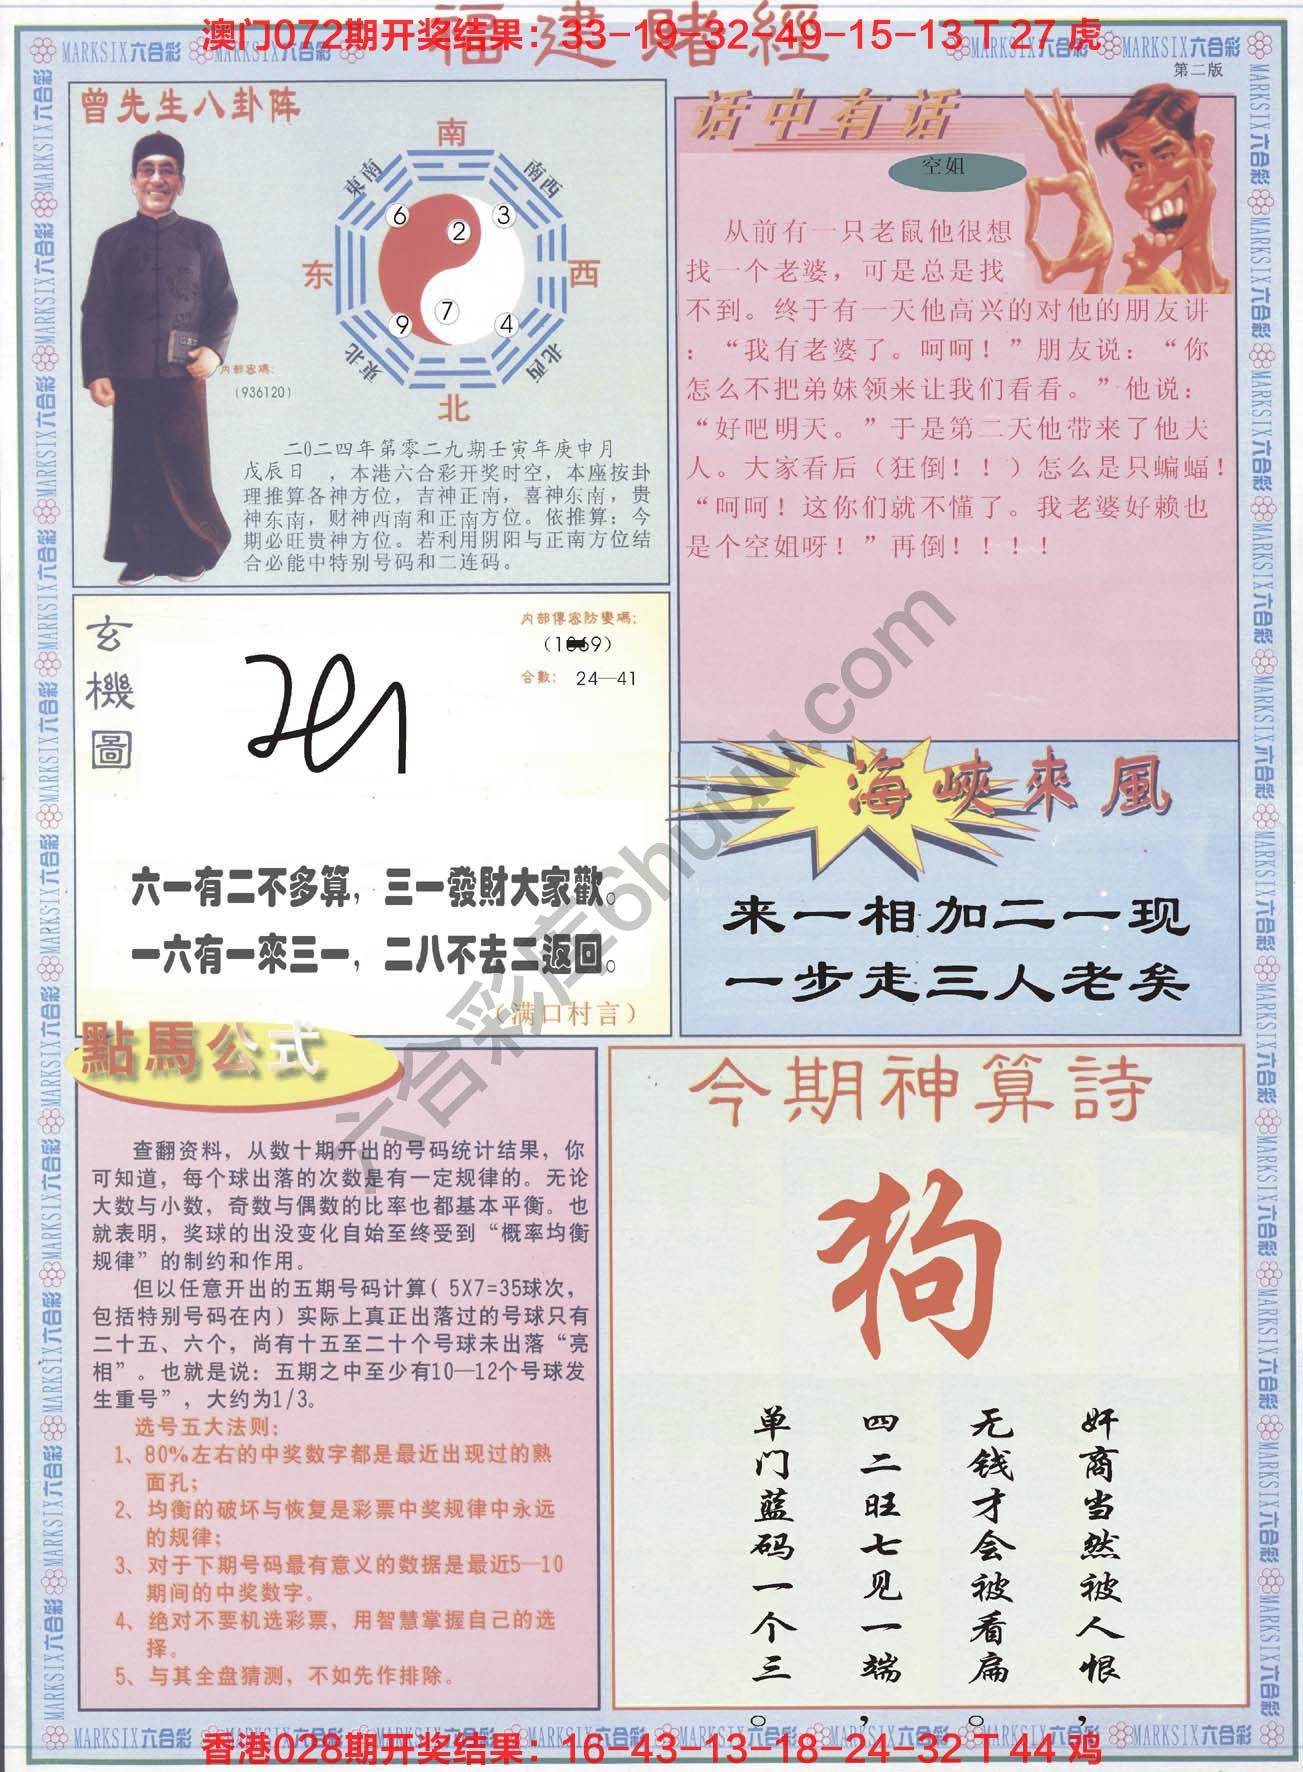 福建賭經
澳门072期开奖结果：33-19-32-49-15-13 T 27 虎
MARKSIX六合彩
第二版
曾先生八卦阵
南
東南
南西
6
2
3
东
西
9
7
4
東北
北西
北
内部密碼:
(936120)
二0二四年第零二九期壬寅年庚申月
戊辰日 ，本港六合彩开奖时空，本座按卦
理推算各神方位，吉神正南，喜神东南，贵
神东南，财神西南和正南方位。依推算：今
期必旺贵神方位。若利用阴阳与正南方位结
合必能中特别号码和二连码。
话中有话
空姐
从前有一只老鼠他很想
找一个老婆，可是总是找
不到。终于有一天他高兴的对他的朋友讲
：“我有老婆了。呵呵！”朋友说：“你
怎么不把弟妹领来让我们看看。”他说：
“好吧明天。”于是第二天他带来了他夫
人。大家看后（狂倒！！）怎么是只蝙蝠！
“呵呵！这你们就不懂了。我老婆好赖也
是个空姐呀！”再倒！！！！
玄機圖
内部傳密防變碼:
合數: 24—41
六一有二不多算，三一發財大家歡。
一六有一來三一，二八不去二返回。
（满口村言）
海峽來風
来一相加二一现
一步走三人老矣
點馬公式
查翻资料，从数十期开出的号码统计结果，你
可知道，每个球出落的次数是有一定规律的。无论
大数与小数，奇数与偶数的比率也都基本平衡。也
就表明，奖球的出没变化自始至终受到“概率均衡
规律”的制约和作用。
但以任意开出的五期号码计算( 5X7=35球次，
包括特别号码在内）实际上真正出落过的号球只有
二十五、六个，尚有十五至二十个号球未出落“亮
相”。也就是说：五期之中至少有10—12个号球发
生重号”，大约为1/3。
选号五大法则:
1、80%左右的中奖数字都是最近出现过的熟
面孔;
2、均衡的破坏与恢复是彩票中奖规律中永远
的规律;
3、对于下期号码最有意义的数据是最近5—10
期间的中奖数字。
4、绝对不要机选彩票，用智慧掌握自己的选
择。
5、与其全盘猜测，不如先作排除。
今期神算詩
狗
奸商当然被人恨，
无钱才会被看扁。
四二旺七见一端，
单门蓝码一个三。
六合彩库6huuu.com
香港028期开奖结果：16-43-13-18-24-32 T 44 鸡